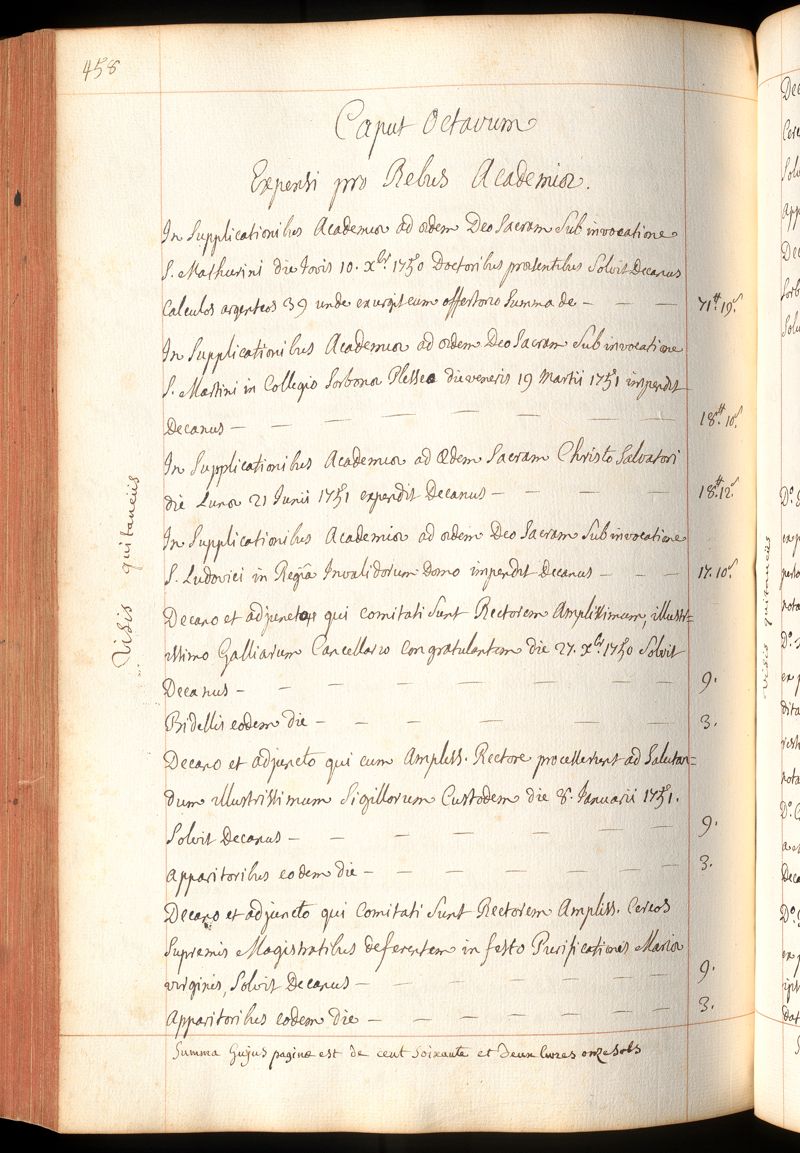 458
Caput Octavum
Expensi pro Rebus Academiæ.
In Supplicationibus Academiæ ad ædem Deo Sacram Sub invocatione
S. Mathurini die Jovis 10. xbris 1750 Doctoribus præsentibus Solvit Decanus
Calculos argenteos 39 unde exurgit cum offertorio Summa de — — — 71tt. 19s
In Supplicationibus Academiæ ad ædem Deo Sacram Sub invocatione
S. Martini in Collegio Sorbonæ Plessæo die veneris 19 Martii 1751 impendit
Decanus — — — — — — — 18tt. 10s.
In Supplicationibus Academiæ ad Ædem Sacram Christo Salvatori
die Lunæ 21 Junii 1751 expendit Decanus — — — — 18tt. 12s.
In Supplicationibus Academiæ ad ædem Deo Sacram Sub invocatione
S. Ludovici in Regiâ Invalidorum Domo impendit Decanus — — — 17. 10s.
Decano et adjuncto qui comitati Sunt Rectorem Amplissimum, illustr=
issimo Galliarum Cancellario Congratulantem die 27. xbr. 1750 Solvit
Decanus — — — — — — — — 9.
Bidellis eodem die — — — — — — 3.
Decano et adjuncto qui cum Ampliss. Rectore processerunt ad Salutan=
dum illustrissimum Sigillorum Custodem die 8. Januarii 1751.
Solvit Decanus — — — — — — 9.
Apparitoribus eodem die — — — — — — 3.
Decano et adjuncto qui Comitati Sunt Rectorem Ampliss. Cereos
Supremis Magistratibus deferentem in festo Purificationis Mariæ
virginis, Solvit Decanus — — — — — — 9.
Apparitoribus eodem die — — — — — — 3.
Summa hujus paginæ est de cent Soixante et Deux livres onze Sols
Visis quitanciis
Visis quitanciis